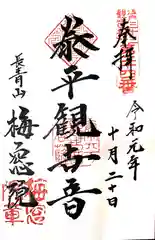 奉拝
令和元年
十月二十日
泰平観世音
長青山
梅窓院